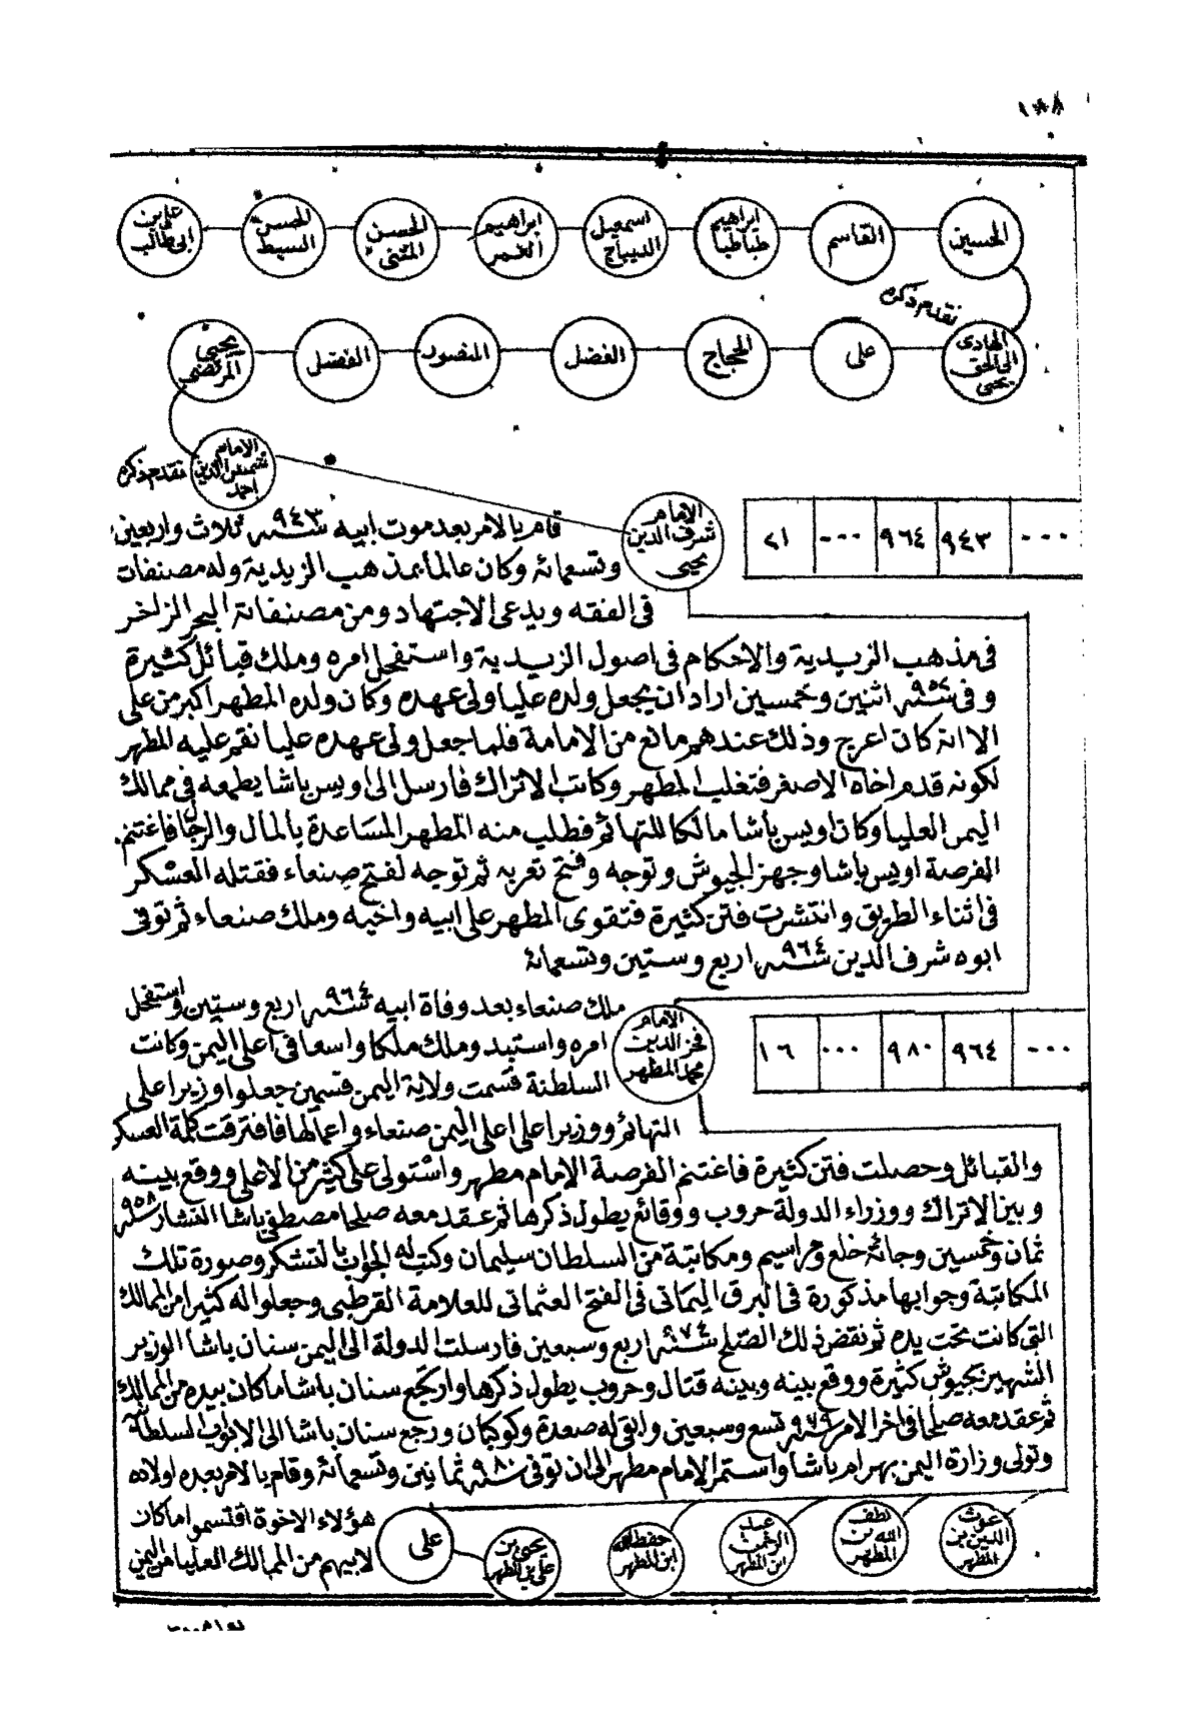 ١٨٨
الحسين القاسم ابراهيم طباطبا اسمعيل الديباج ابراهيم الغمر الحسن المثنى الحسن السبط علي بن ابي طالب
تقدم ذكره
الهادى الى الحق يحيى على الحجاج الفضل المنصور الفضل يحيى المرتضى
الامام شمس الدين احمد تقدم ذكره
الامام شرف الدين يحيى
٠٠٠ ٩٤٣ ٩٦٤ ٠٠٠ ٢١
قام بالامر بعد موت ابيه سنة ٩٤٣ ثلاث واربعين
وتسعمائه وكان عالما بمذهب الزيدية وله مصنفات
فى الفقه ويدعى الاجتهاد ومن مصنفاته البحر الزاخر
فى مذهب الزيدية والاحكام فى اصول الزيدية واستفحل امره وملك قبائل كثيرة
وفى سنة ٩٥٢ اثنين وخمسين اراد ان يجعل ولده عليا ولى عهده وكان ولده المطهر اكبر من على
الا انه كان اعرج وذلك عندهم مانع من الامامة فلما جعل ولى عهده عليا نقم عليه المطهر
لكونه قدم اخاه الاصغر فتغلب المطهر وكاتب الاتراك فارسل الى اويس باشا يطمعه فى ممالك
اليمن العليا وكان اويس باشا مالكا للتهائم فطلب منه المطهر المساعدة بالمال والرجال فاغتنم
الفرصة اويس باشا وجهز الجيوش وتوجه وفتح تعز به ثم توجه لفتح صنعاء فقتله العسكر
فى اثناء الطريق وانتشرت فتن كثيرة فتقوى المطهر على ابيه واخيه وملك صنعاء ثم توفى
ابوه شرف الدين سنة ٩٦٤ اربع وستين وتسعمائة
الامام فخر الدين محمد المطهر
٠٠٠ ٩٦٤ ٩٨٠ ٠٠٠ ١٦
ملك صنعاء بعد وفاة ابيه سنة ٩٦٤ اربع وستين واستفحل
امره واستبد وملك ملكا واسعا فى اعلى اليمن وكانت
السلطنة قسمت ولاية اليمن قسمين جعلوا وزيرا على
التهائم ووزيرا على اعلى اليمن صنعاء واعمالها فافترقت كلمة العسكر
والقبائل وحصلت فتن كثيرة فاغتنم الفرصة الامام مطهر واستولى على كثير من الاعلى ووقع بينه
وبين الاتراك ووزراء الدولة حروب ووقائع يطول ذكرها ثم عقد معه صلحا مصطفى باشا النشار سنة ٩٥٨
ثمان وخمسين وجائه خلع ومراسيم ومكاتبة من السلطان سليمان وكتب له الجواب بالتشكر وصورة تلك
المكاتبة وجوابها مذكورة فى البرق اليمانى فى الفتح العثمانى للعلامة القرطبى وجعلوا له كثيرا من الممالك
التى كانت تحت يده ثم نقض ذلك الصلح سنة ٩٧٤ اربع وسبعين فارسلت الدولة الى اليمن سنان باشا الوزير
الشهير بجيوش كثيرة ووقع بينه وبينه قتال وحروب يطول ذكرها وارتجع سنان باشا ما كان بيده من الممالك
ثم عقد معه صلحا فى اخر الامر سنة ٩٧٩ تسع وسبعين وابقى له صعدة وكوكبان ورجع سنان باشا الى الابواب السلطانية
وتولى وزارة اليمن بهرام باشا واستمر الامام مطهر الى ان توفى سنة ٩٨٠ ثمانين وتسعمائة وقام بالامر بعده اولاده
غوث الدين بن المطهر لطف الله بن المطهر عبد الرحمن ابن المطهر حفظ الله ابن المطهر يحيى بن على بن المطهر على
هؤلاء الاخوة اقتسموا ما كان
لابيهم من الممالك العليا من اليمن